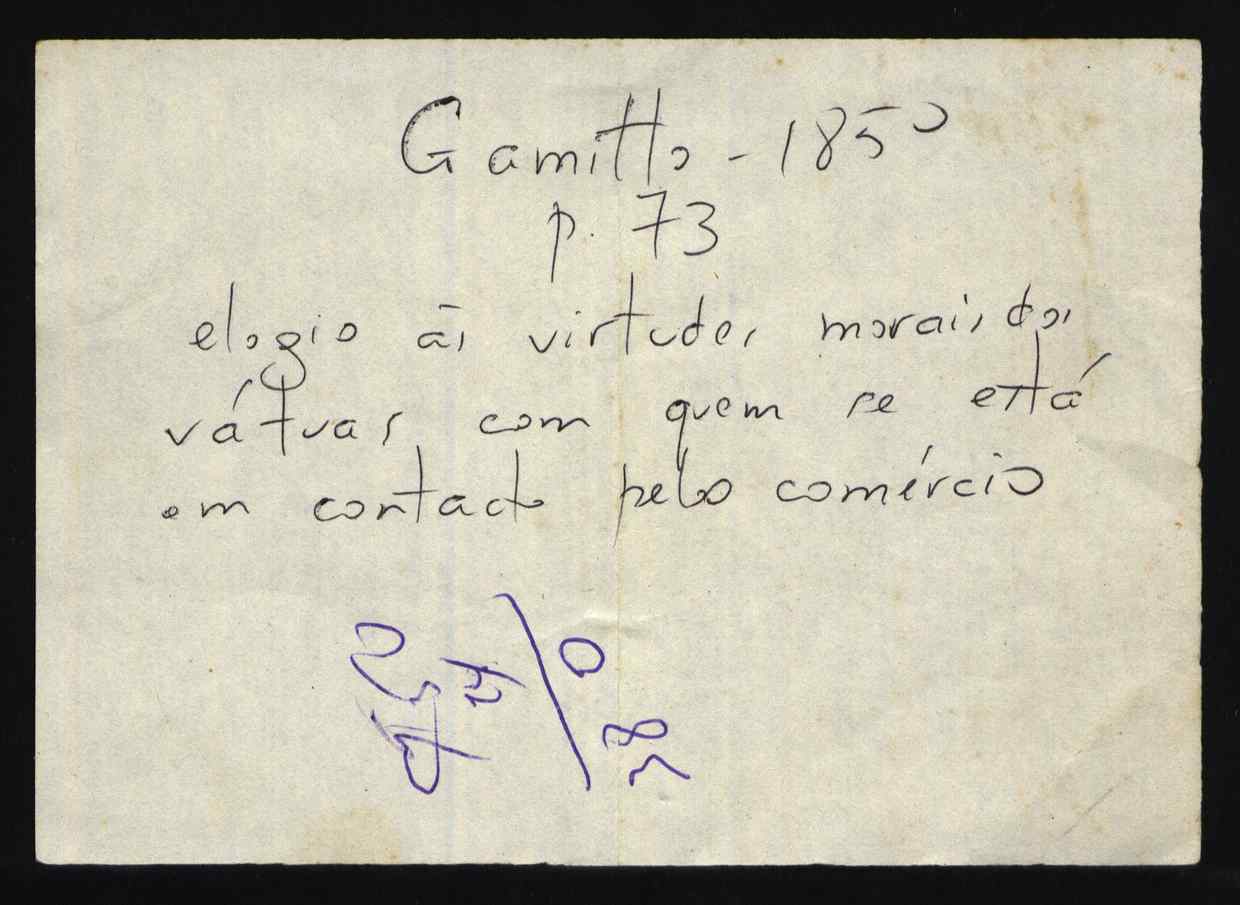 Gamitto - 1850
p. 73
elogio às virtudes morais dos
vátuas, com quem se está
em contacto pelo comércio